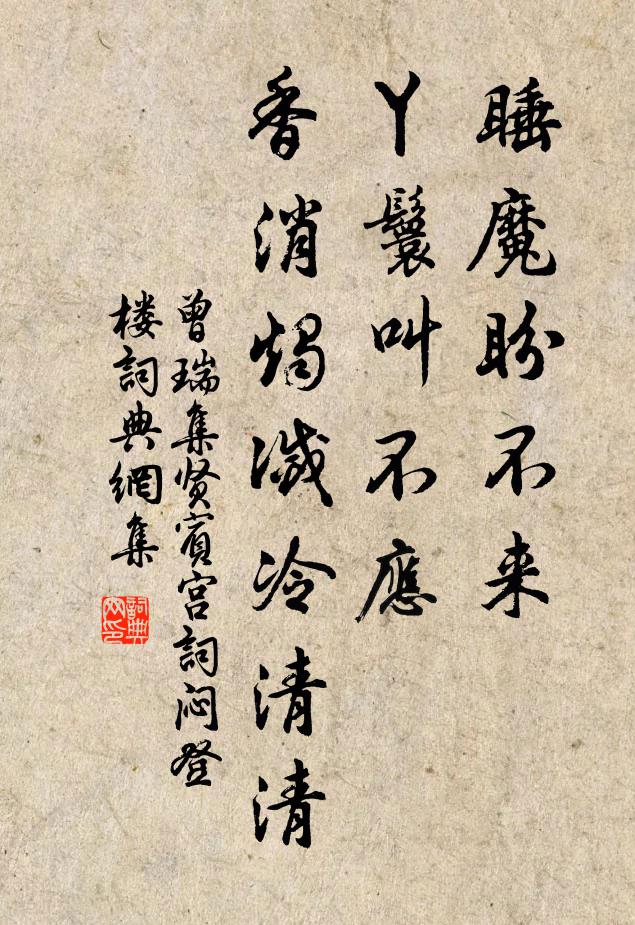 睡魔盼不来
丫鬟叫不應
香消燭滅冷清清
曾瑞集贤賓宫詞闷登
楼詞典網集
詞典
网印